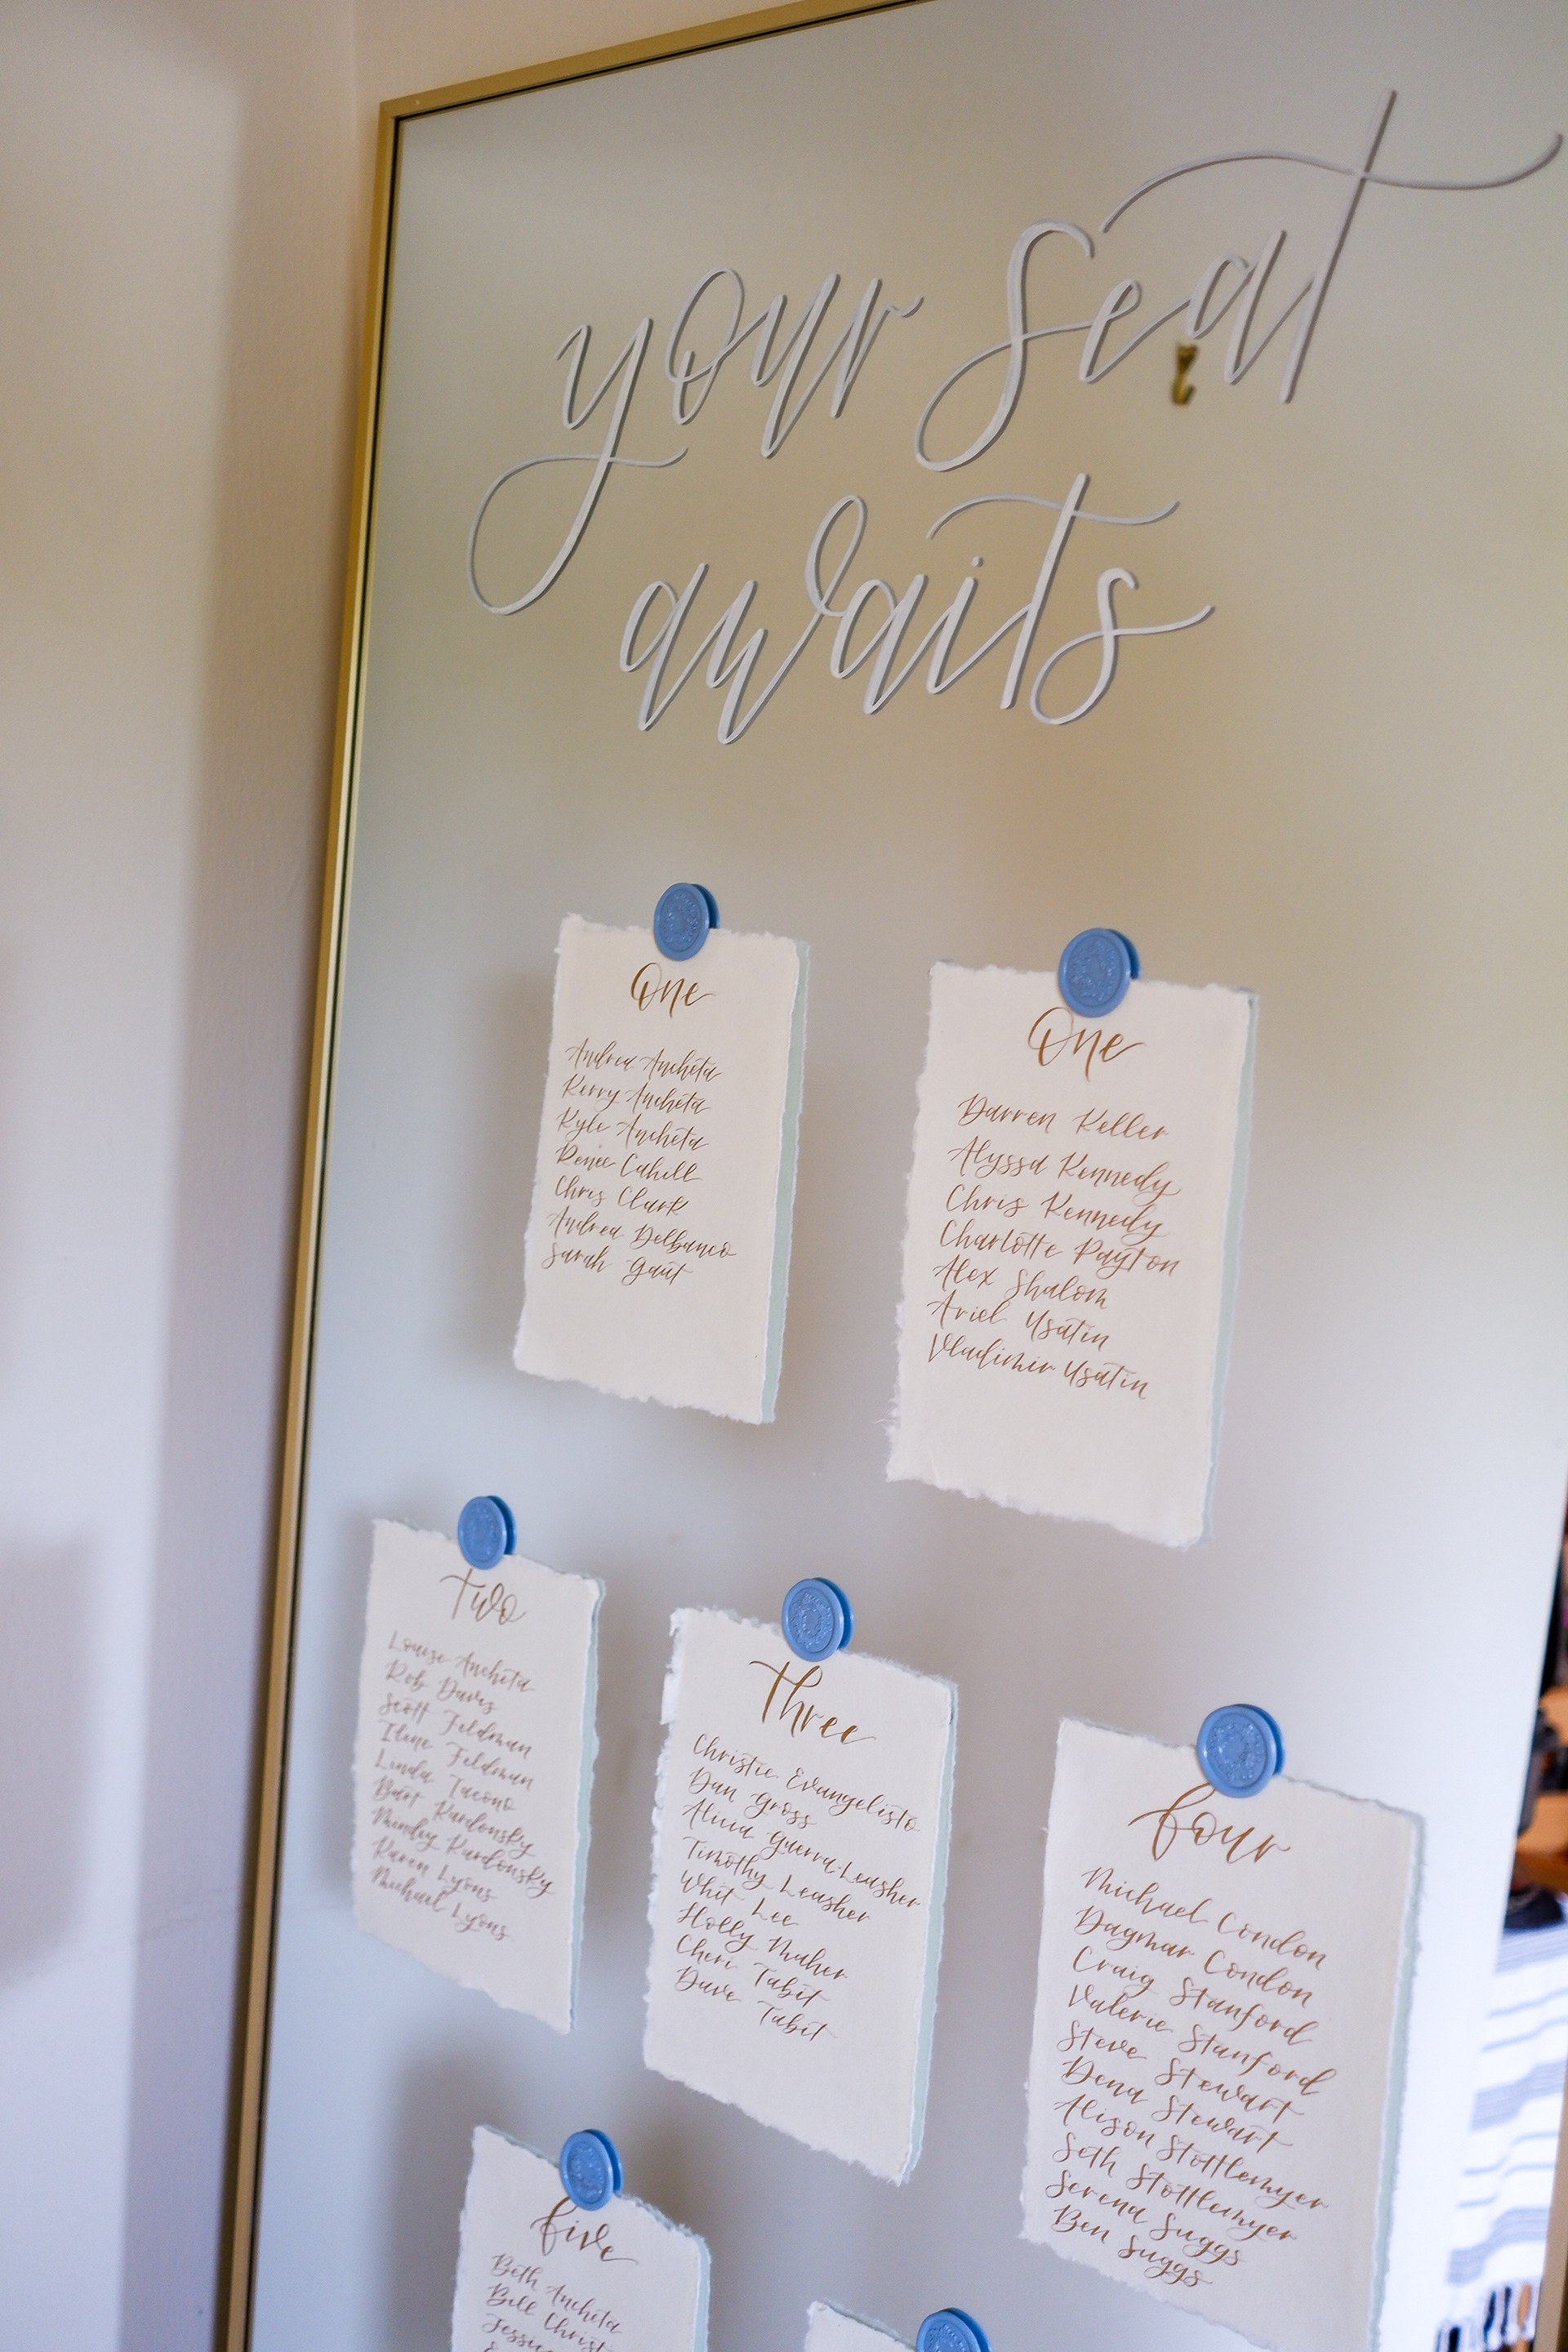 your seat
awaits
One
Andrea Ancheta
Kerry Ancheta
Kyle Ancheta
Renee Cahill
Chris Clark
Andrea Delbanco
Sarah Gaut
One
Darren Keller
Alyssa Kennedy
Chris Kennedy
Charlotte Payton
Alex Shalom
Ariel Usatin
Vladimir Usatin
Two
Louise Ancheta
Rob Davis
Scott Feldman
Ilene Feldman
Linda Iacono
Bart Kardonsky
Mindey Kardonsky
Karen Lyons
Michael Lyons
Three
Christie Evangelisto
Dan Gross
Alicia Guerra-Leasher
Timothy Leasher
Whit Lee
Holly Maher
Cheri Tabit
Dave Tabit
four
Michael Condon
Dagmar Condon
Craig Stanford
Valerie Stanford
Steve Stewart
Dena Stewart
Alison Stottlemyer
Seth Stottlemyer
Serena Suggs
Ben Suggs
five
Beth Ancheta
Bill